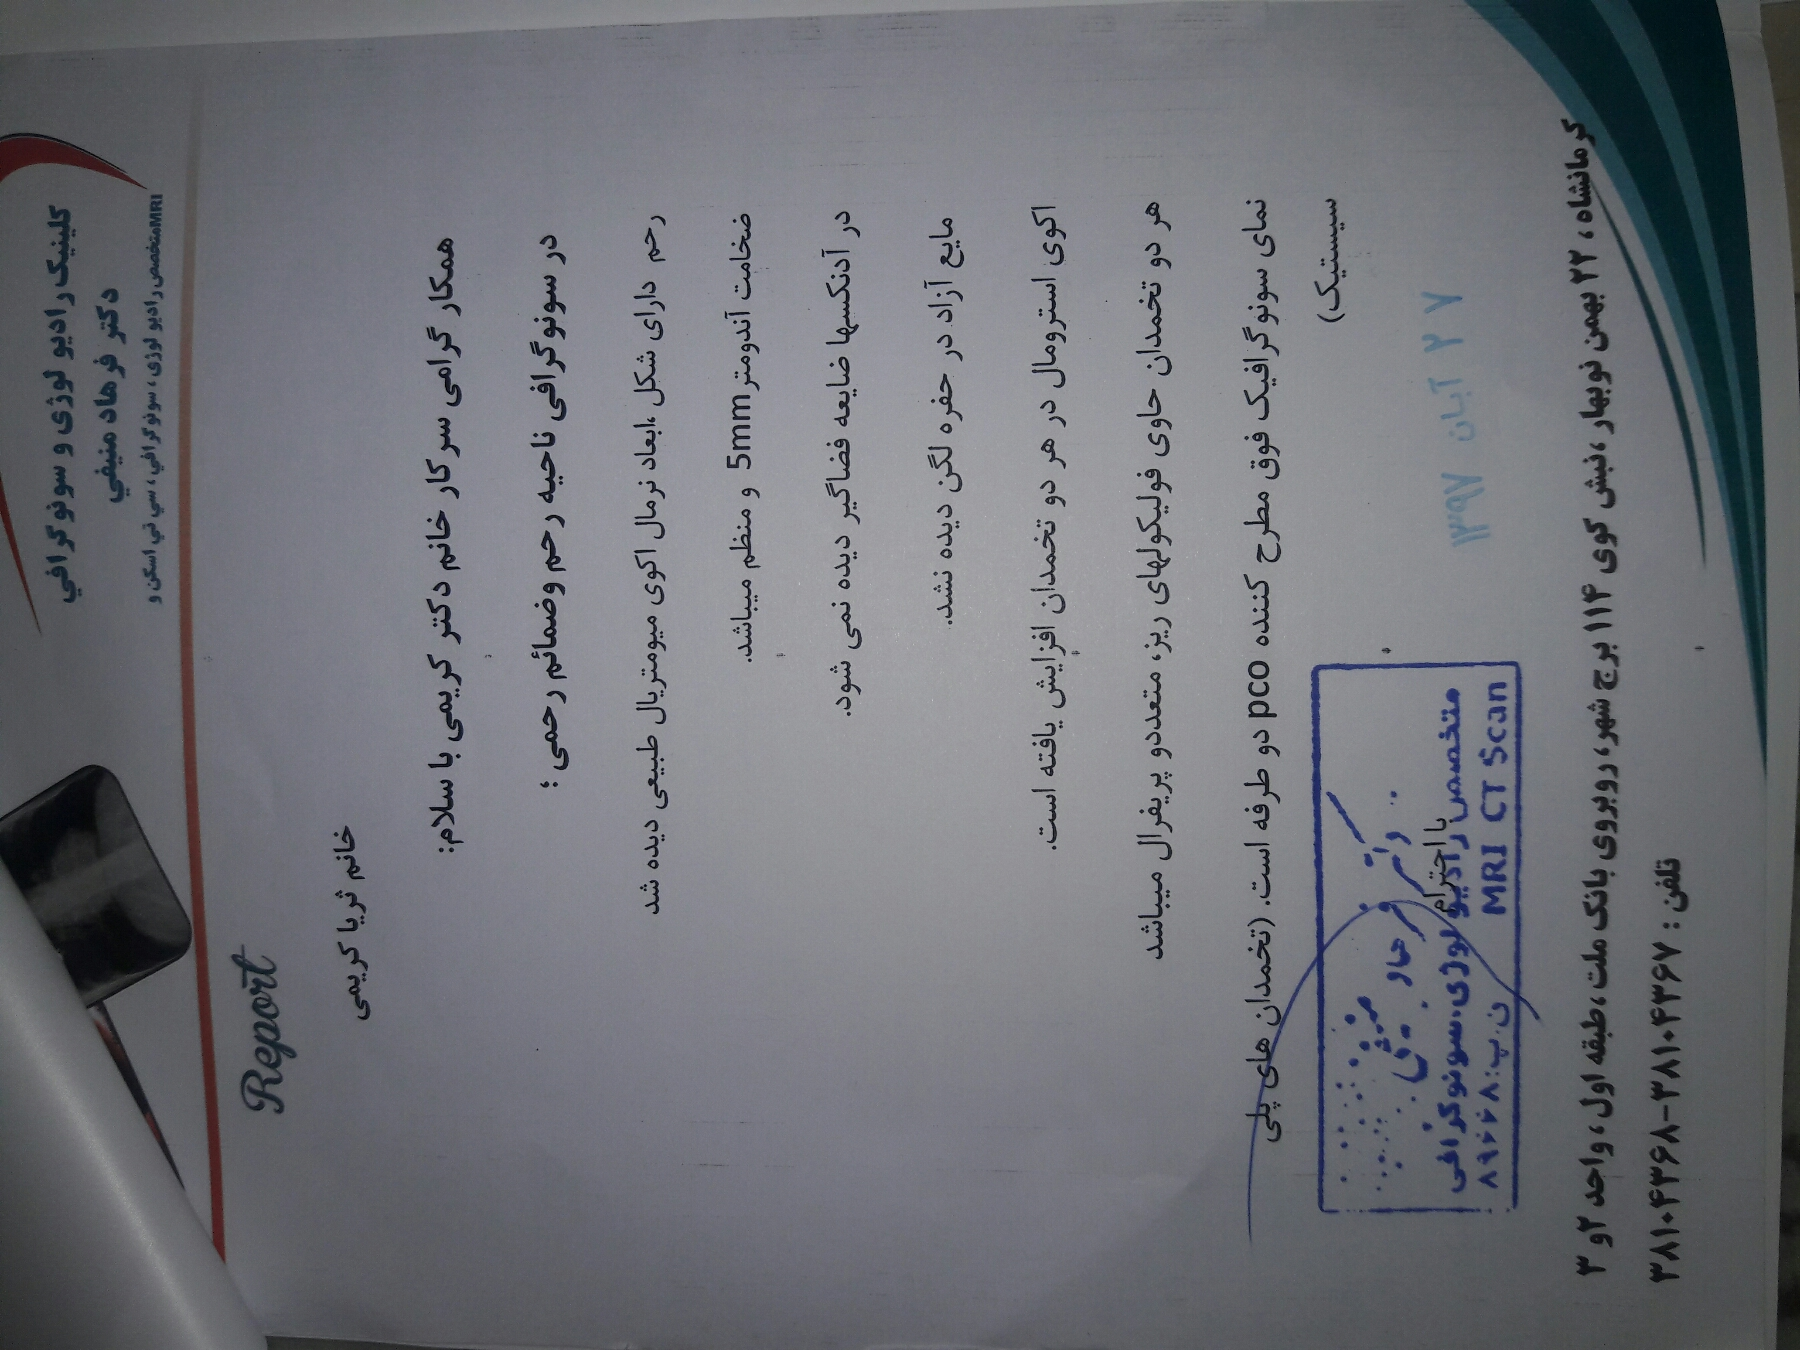 کلینیک رادیو لوژی و سونوگرافي
دکتر فرهاد منیفي
متخصص رادیو لوژی ، سونوگرافي، سي تي اسکن و MRI
Report
خانم ثریا کریمی
همکار گرامی سرکار خانم دکتر کریمی با سلام:
در سونوگرافی ناحیه رحم وضمائم رحمی ؛
رحم دارای شکل ،ابعاد نرمال اکوی میومتریال طبیعی دیده شد
ضخامت آندومتر 5mm و منظم میباشد.
در آدنکسها ضایعه فضاگیر دیده نمی شود.
مایع آزاد در حفره لگن دیده نشد.
اکوی استرومال در هر دو تخمدان افزایش یافته است.
هر دو تخمدان حاوی فولیکولهای ریز، متعددو پریفرال میباشد
نمای سونوگرافیک فوق مطرح کننده pco دو طرفه است. (تخمدان های پلی
سیستیک)
۲۷ آبان ۱۳۹۷
با احترام
متخصص رادیو لوژی،سونوگرافی
MRI CT Scan
ن.پ:
کرمانشاه ، ۲۲ بهمن نوبهار ، نبش کوی ۱۱۴ برج شهر، روبروی بانک ملت ، طبقه اول ، واحد ۲ و ۳
تلفن : ۳۸۱۰۴۳۶۸-۳۸۱۰۴۳۶۷